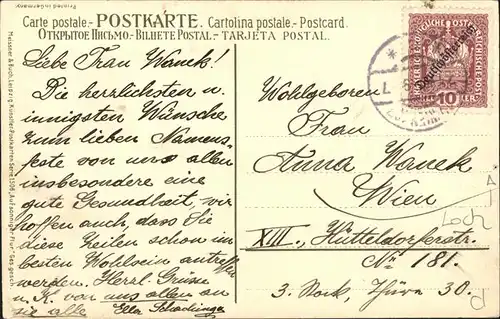 Carte postale.- POSTKARTE. Cartolina postale.- Postcard.
Открытое Письмо.- BILHETE POSTAL.- TARJETA POSTAL.
Printed in Germany.
Meissner & Buch, Leipzig. Künstler-Postkarten Serie 1506.
Ges. gesch.
Liebe Frau Wanek!
Die herzlichsten u.
innigsten Wünsche
zum lieben Namens-
feste von uns allen
insbesondere eine
gute Gesundheit, wir
hoffen auch, dass Sie
diese Zeilen schon im
besten Wohlsein antreffen
werden. Herzl. Grüsse
u. K. von uns allen an
sie alle
Wohlgeboren
Frau
Anna Wanek
Wien
XIII., Hütteldorferstr.
No 181.
3. Stock, Thüre 30.
Deutschösterreich
10
Loch